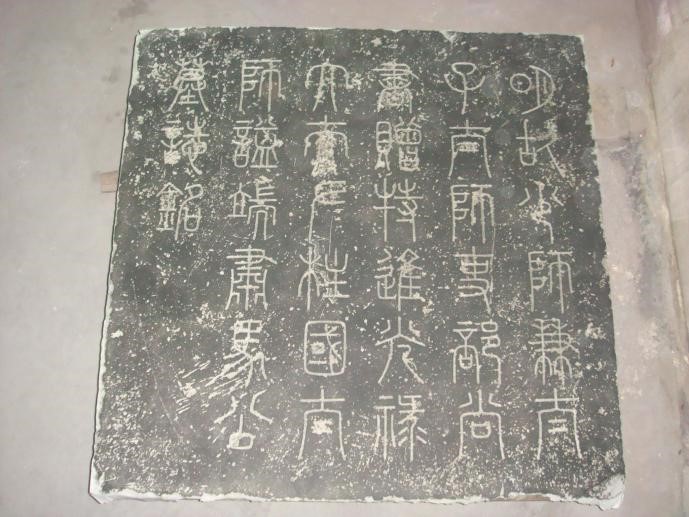 明故少師兼太
子太師吏部尚
書贈特進光祿
大夫左柱國太
師謚端肅馬公
墓誌銘